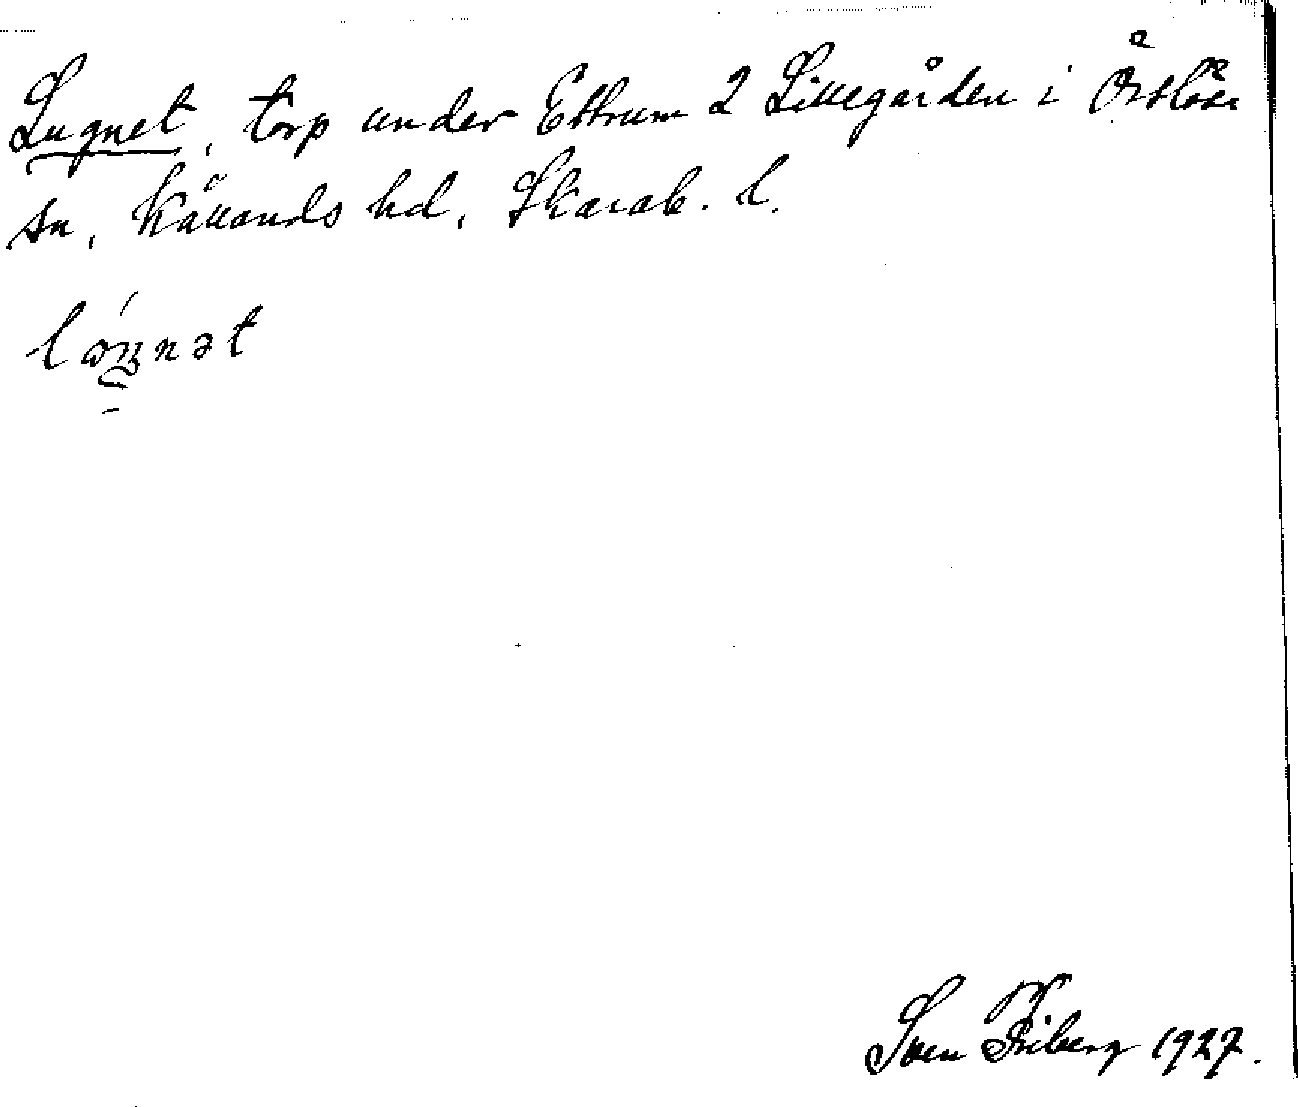 Lugnet, torp under Ettrum 2 Lillegården i Örslösa
sn, Kållands hd, Skarab. l.
Sven Friberg 1927.